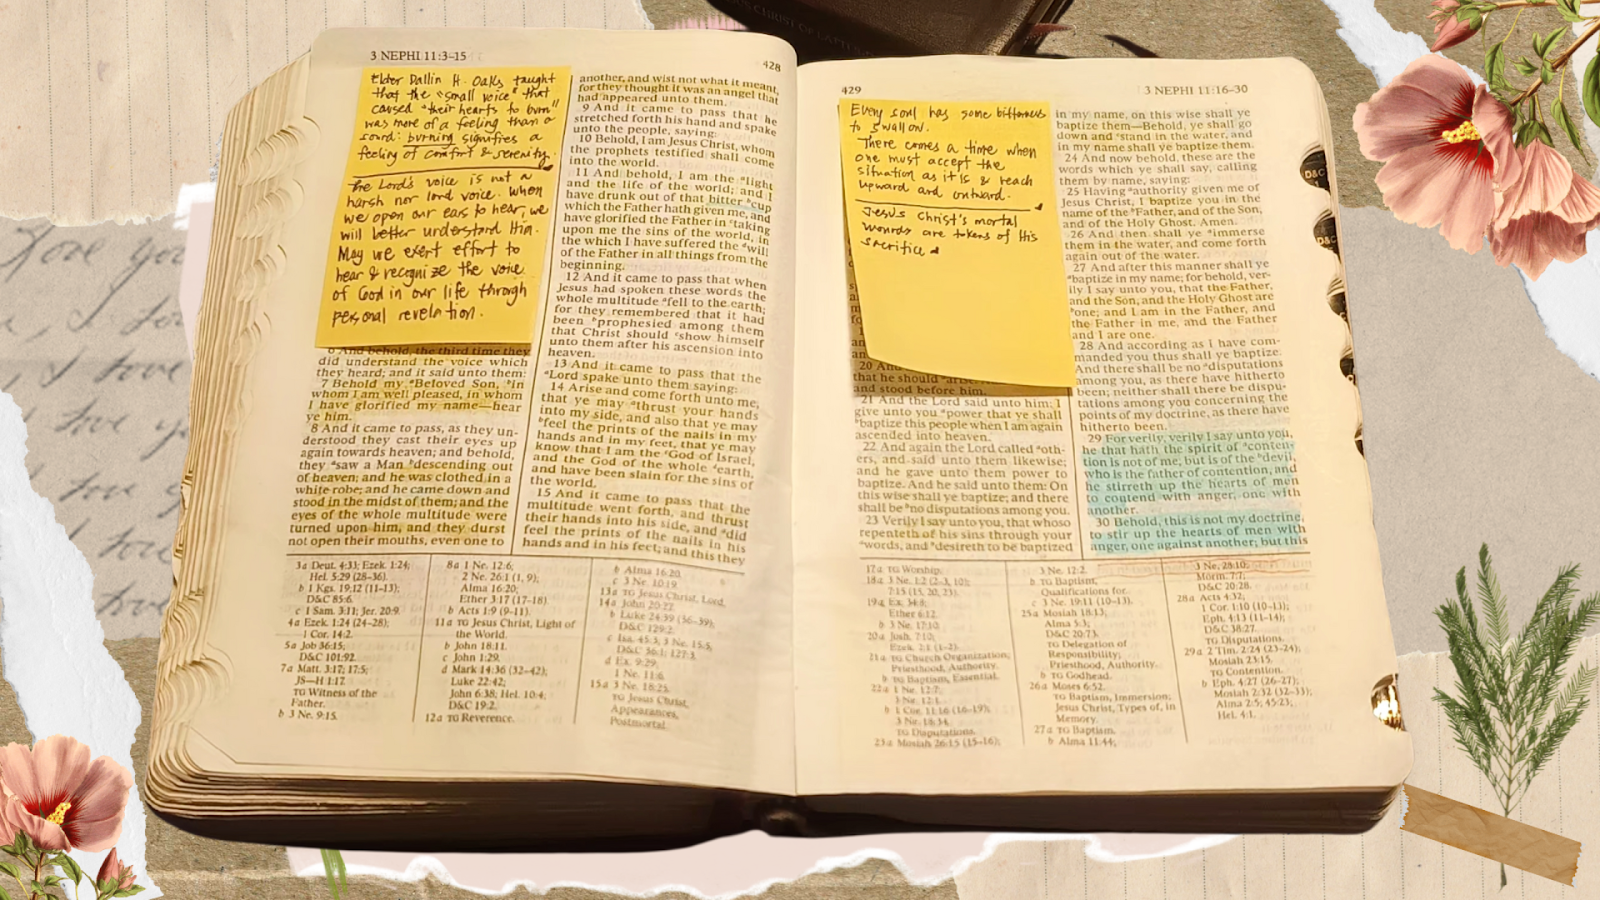 3 NEPHI 11:3–15
428
Elder Dallin H. Oaks taught
that the "small voice" that
caused "their hearts to burn"
was more of a feeling than a
sound: burning signifies a
feeling of comfort & serenity.
The Lord's voice is not a
harsh nor loud voice. When
we open our ears to hear, we
will better understand Him.
May we exert effort to
hear & recognize the voice
of God in our life through
personal revelation.
6 And behold, the third time they
did understand the voice which
they heard; and it said unto them:
7 Behold my ᵃBeloved Son, ᵇin
whom I am well pleased, in whom
I have glorified my name—hear
ye him.
8 And it came to pass, as they un-
derstood they cast their eyes up
again towards heaven; and behold,
they ᵃsaw a Man ᵇdescending out
of heaven; and he was clothed in a
white robe; and he came down and
stood in the midst of them; and the
eyes of the whole multitude were
turned upon him, and they durst
not open their mouths, even one to
another, and wist not what it meant,
for they thought it was an angel that
had appeared unto them.
9 And it came to pass that he
stretched forth his hand and spake
unto the people, saying:
10 Behold, I am Jesus Christ, whom
the prophets testified shall come
into the world.
11 And behold, I am the ᵃlight
and the life of the world; and I
have drunk out of that bitter ᵇcup
which the Father hath given me, and
have glorified the Father in ᶜtaking
upon me the sins of the world, in
the which I have suffered the ᵈwill
of the Father in all things from the
beginning.
12 And it came to pass that when
Jesus had spoken these words the
whole multitude ᵃfell to the earth;
for they remembered that it had
been ᵇprophesied among them
that Christ should ᶜshow himself
unto them after his ascension into
heaven.
13 And it came to pass that the
ᵃLord spake unto them saying:
14 Arise and come forth unto me,
that ye may ᵃthrust your hands
into my side, and also that ye may
ᵇfeel the prints of the nails in my
hands and in my feet, that ye may
know that I am the ᶜGod of Israel,
and the God of the whole ᵈearth,
and have been slain for the sins of
the world.
15 And it came to pass that the
multitude went forth, and thrust
their hands into his side, and ᵃdid
feel the prints of the nails in his
hands and in his feet; and this they
3a Deut. 4:33; Ezek. 1:24;
Hel. 5:29 (28–36).
b 1 Kgs. 19:12 (11–13);
D&C 85:6.
c 1 Sam. 3:11; Jer. 20:9.
4a Ezek. 1:24 (24–28);
1 Cor. 14:2.
5a Job 36:15;
D&C 101:92.
7a Matt. 3:17; 17:5;
JS—H 1:17.
TG Witness of the
Father.
b 3 Ne. 9:15.
8a 1 Ne. 12:6;
2 Ne. 26:1 (1, 9);
Alma 16:20;
Ether 3:17 (17–18).
b Acts 1:9 (9–11).
11a TG Jesus Christ, Light of
the World.
b John 18:11.
c John 1:29.
d Mark 14:36 (32–42);
Luke 22:42;
John 6:38; Hel. 10:4;
D&C 19:2.
12a TG Reverence.
b Alma 16:20.
c 3 Ne. 10:19.
13a TG Jesus Christ, Lord.
14a John 20:27.
b Luke 24:39 (36–39);
D&C 129:2.
c Isa. 45:3; 3 Ne. 15:5;
D&C 36:1; 127:3.
d Ex. 9:29;
1 Ne. 11:6.
15a 3 Ne. 18:25.
TG Jesus Christ,
Appearances,
Postmortal.
429
3 NEPHI 11:16–30
Every soul has some bitterness
to swallow.
There comes a time when
one must accept the
situation as it is & reach
upward and outward.
Jesus Christ's mortal
wounds are tokens of His
sacrifice
20 And
that he should
and stood before him.
21 And the Lord said unto him: I
give unto you ᵃpower that ye shall
ᵇbaptize this people when I am again
ascended into heaven.
22 And again the Lord called ᵃoth-
ers, and said unto them likewise;
and he gave unto them power to
baptize. And he said unto them: On
this wise shall ye baptize; and there
shall be ᵇno disputations among you.
23 Verily I say unto you, that whoso
repenteth of his sins through your
ᵃwords, and ᵇdesireth to be baptized
in my name, on this wise shall ye
baptize them—Behold, ye shall go
down and ᶜstand in the water, and
in my name shall ye baptize them.
24 And now behold, these are the
words which ye shall say, calling
them by name, saying:
25 Having ᵃauthority given me of
Jesus Christ, I baptize you in the
name of the ᵇFather, and of the Son,
and of the Holy Ghost. Amen.
26 And then shall ye ᵃimmerse
them in the water, and come forth
again out of the water.
27 And after this manner shall ye
ᵃbaptize in my name; for behold, ver-
ily I say unto you, that the Father,
and the Son, and the Holy Ghost are
ᵇone; and I am in the Father, and
the Father in me, and the Father
and I are one.
28 And according as I have com-
manded you thus shall ye baptize.
And there shall be no ᵃdisputations
among you, as there have hitherto
been; neither shall there be dispu-
tations among you concerning the
points of my doctrine, as there have
hitherto been.
29 For verily, verily I say unto you,
he that hath the spirit of ᵃconten-
tion is not of me, but is of the ᵇdevil,
who is the father of contention, and
he stirreth up the hearts of men
to contend with anger, one with
another.
30 Behold, this is not my doctrine,
to stir up the hearts of men with
anger, one against another; but this
17a TG Worship.
18a 3 Ne. 1:2 (2–3, 10);
7:15 (15, 20, 23).
19a Ex. 34:8;
Ether 6:12.
b 3 Ne. 17:10.
20a Josh. 7:10;
Ezek. 2:1 (1–2).
21a TG Church Organization;
Priesthood, Authority.
b TG Baptism, Essential.
22a 1 Ne. 12:7;
3 Ne. 12:1.
b 1 Cor. 11:16 (16–19);
3 Ne. 18:34.
TG Disputations.
23a Mosiah 26:15 (15–16);
3 Ne. 12:2.
b TG Baptism,
Qualifications for.
c 3 Ne. 19:11 (10–13).
25a Mosiah 18:13;
Alma 5:3;
D&C 20:73.
TG Delegation of
Responsibility;
Priesthood, Authority.
b TG Godhead.
26a Moses 6:52.
TG Baptism, Immersion;
Jesus Christ, Types of, in
Memory.
27a TG Baptism.
b Alma 11:44;
3 Ne. 28:10;
Morm. 7:7;
D&C 20:28.
28a Acts 4:32;
1 Cor. 1:10 (10–13);
Eph. 4:13 (11–14);
D&C 38:27.
TG Disputations.
29a 2 Tim. 2:24 (23–24);
Mosiah 23:15.
TG Contention.
b Eph. 4:27 (26–27);
Mosiah 2:32 (32–33);
Alma 2:5; 45:23;
Hel. 4:1.
D&C
D&C
love you